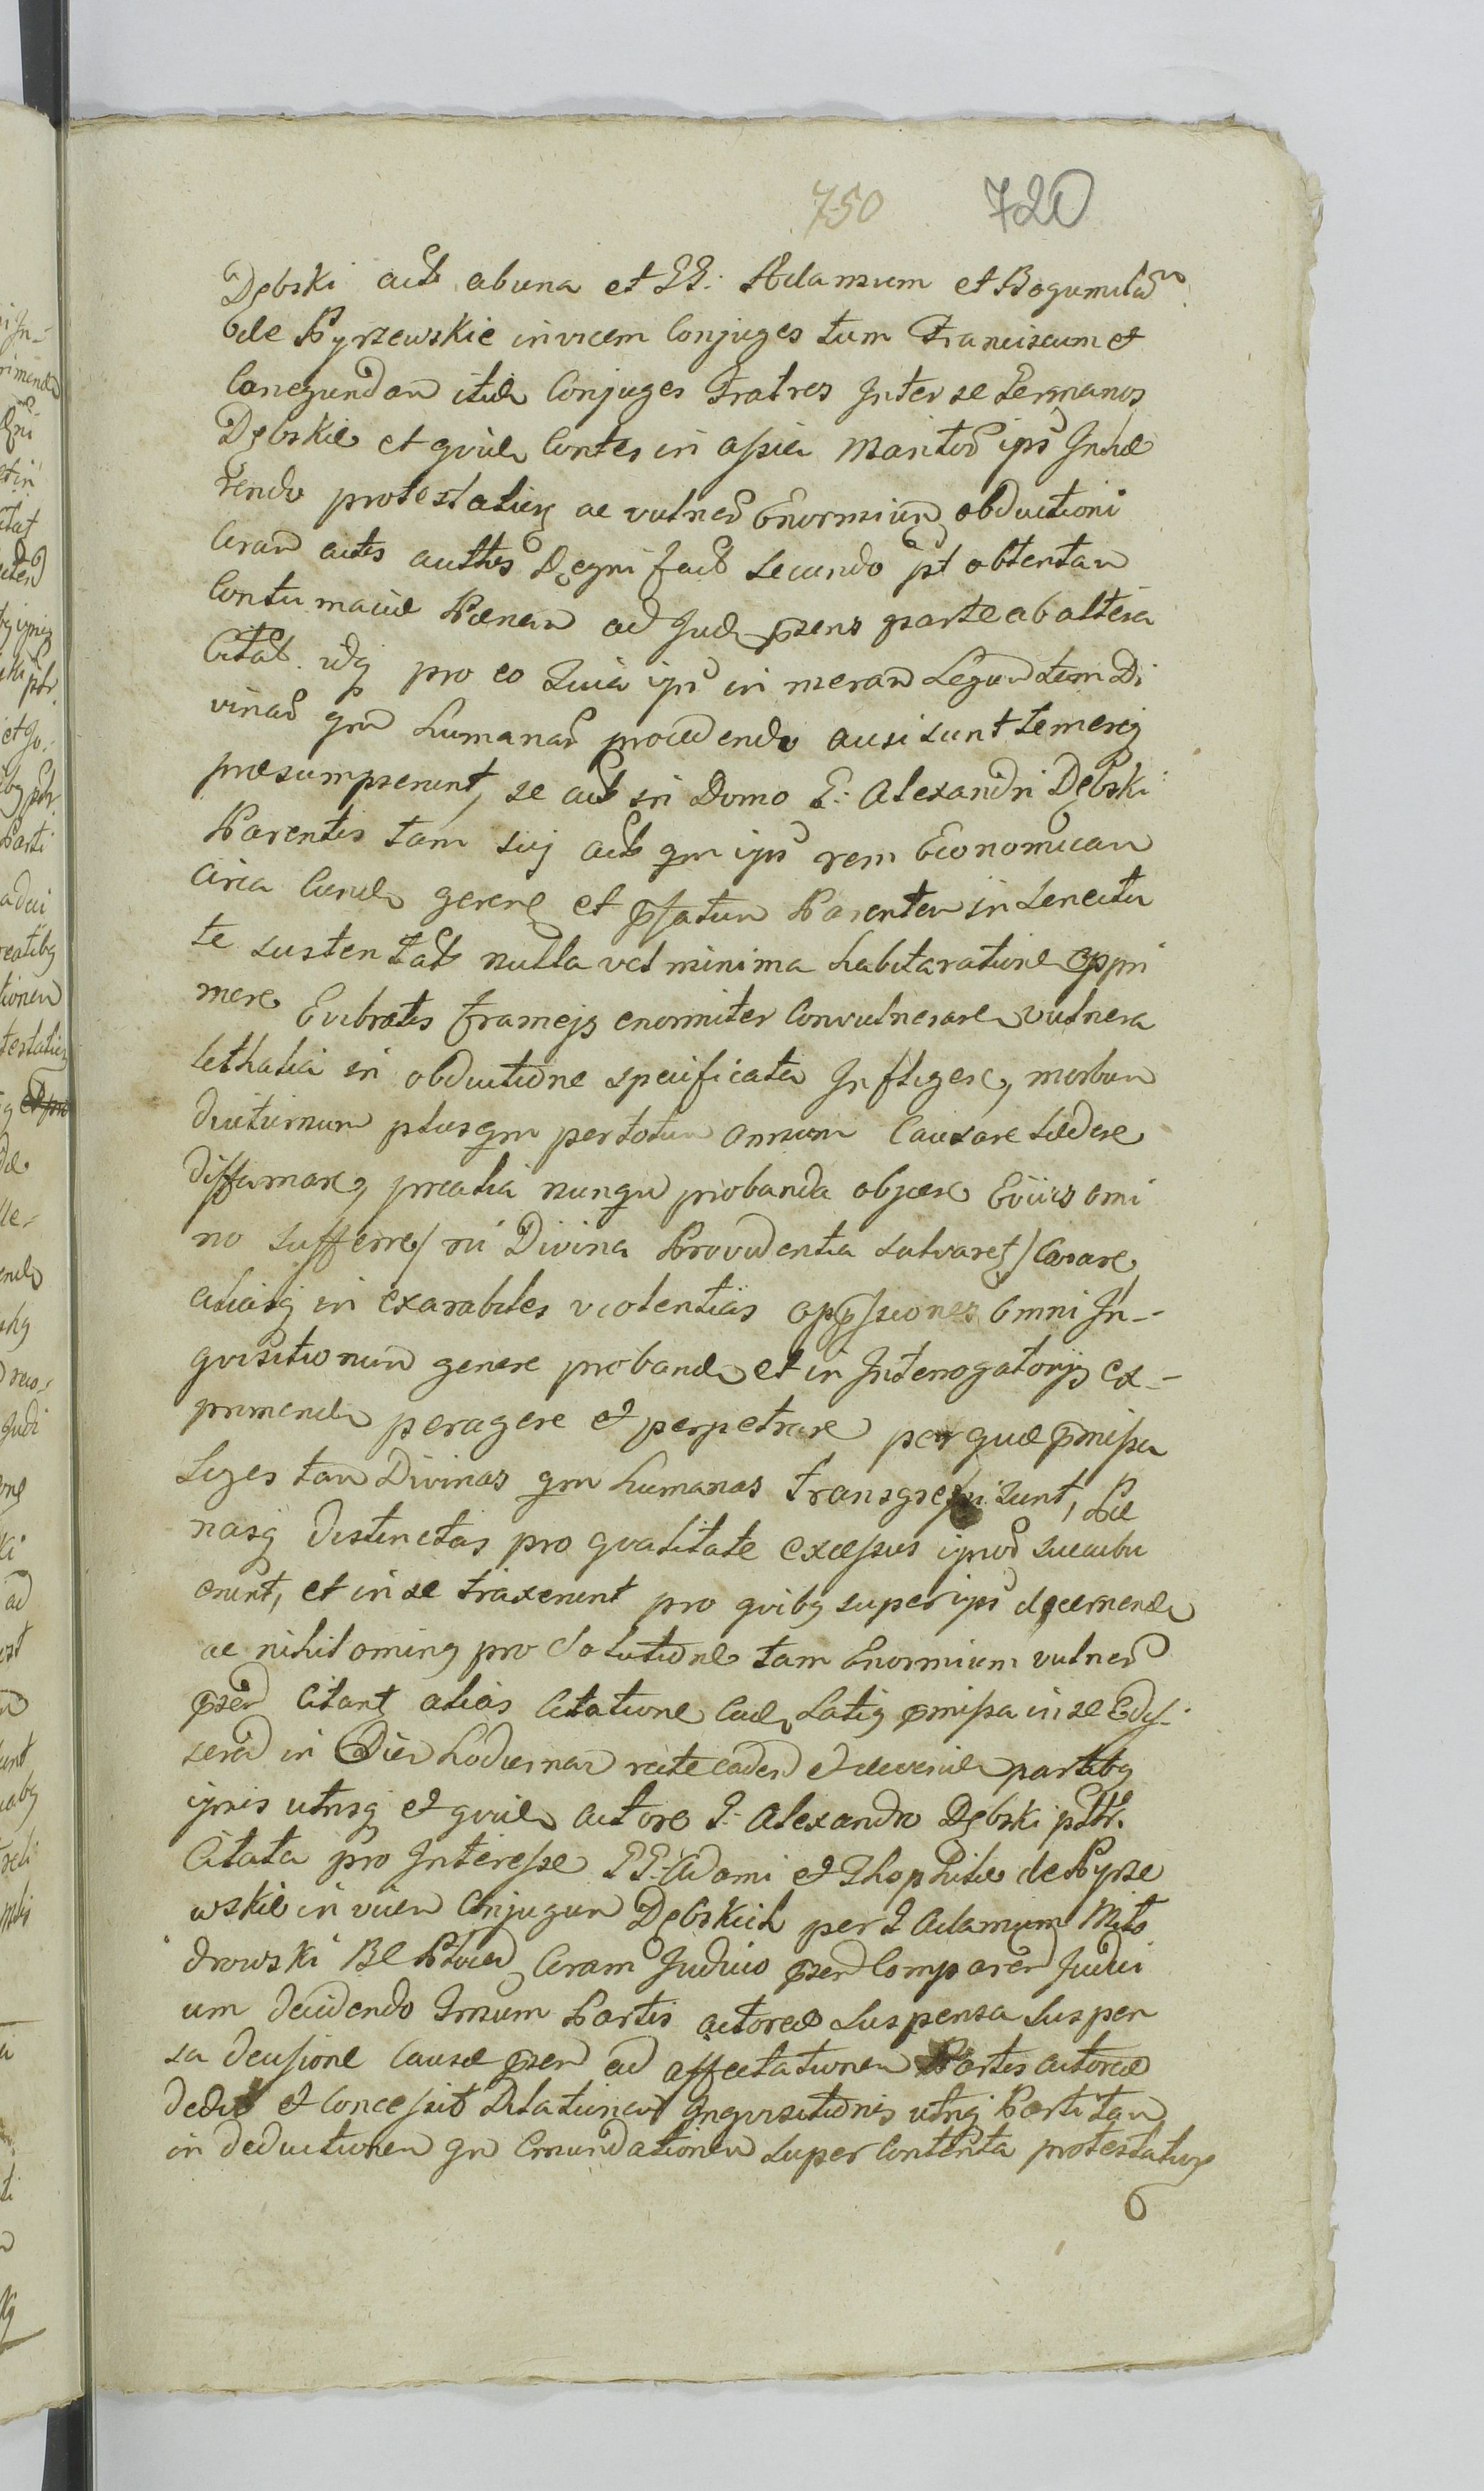 750 720
Dębski act. ab una et GG. Adamum et Bogumilam
de Pyrzewskie invicem Conjuges tum Franciscum et
Cunegundam itid. Conjuges Fratres Inter se Germanos
Dębskie et qvid. Contes in assia Maritor. ips. Inhæ
rendo protestationj ac vulner. Enormium obductioni
Coram actis authcis fact. secundo pt obtentam
Contumaciæ Pænam ad Jud. pæns parte ab altera
Citat. idq pro eo Quia ipsi in meram Legum tam Di
vinar. qm Humanar. procedendo ausi sunt temereq
præsumpserunt, se act. in Domo G. Alexandri Dębski
Parentis tam suj act. qm ips. rem Economicam
circa Eund. gerere et pfatum Parentem in senectu
te sustentat. nulla vel minima habita ratione oppri
mere Evibratis frameis enormiter Convulnerare, vulnera
lethalia in obductione specificata Infligere, morbum
diuturnum plusqm per totum annum Causare lædere
diffamare, prætia nunqm probanda objcere Eviis omi
no sufferre / ni Divina Providentia salvaret / Curare,
aliasq in exarabiles violentias oppssiones omni In-
qvisitionum genere proband. et in Interrogatorijs ex-
primend. peragere et perpetrare per quæ pmissa
Leges tam Divinas qm humanas transgressi sunt, Pæ
nasq distinctas pro qvalitate excessus ipsor. succubu
erunt, et in se traxerunt pro qvibq super ips. decernend.
ac nihilominq pro solutione tam Enormium vulner.
pser. Citant alias Citatione Ead. Latiq pmissa in se
serer. in Diem hodiernam rite caden. et deveni. partibq
ipsis utrisq et qvid. actore G. Alexandro Dębski
Citata pro Interesse GG. Adami et Theophilæ de Pyrze
wskie invicem Conjugum Dębskich per G Adamum Milo
drowski Coram Judicio psen. Comparen. Judici
um decidendo Partis actoreæ suspensa suspen
sa decisione Causæ psen. ad affectationem Partis actoreæ
dedit et Concessit Dilationem Inqvisitionis utriq Parti tam
in deductionem qm Emundationem super Contenta protestationis